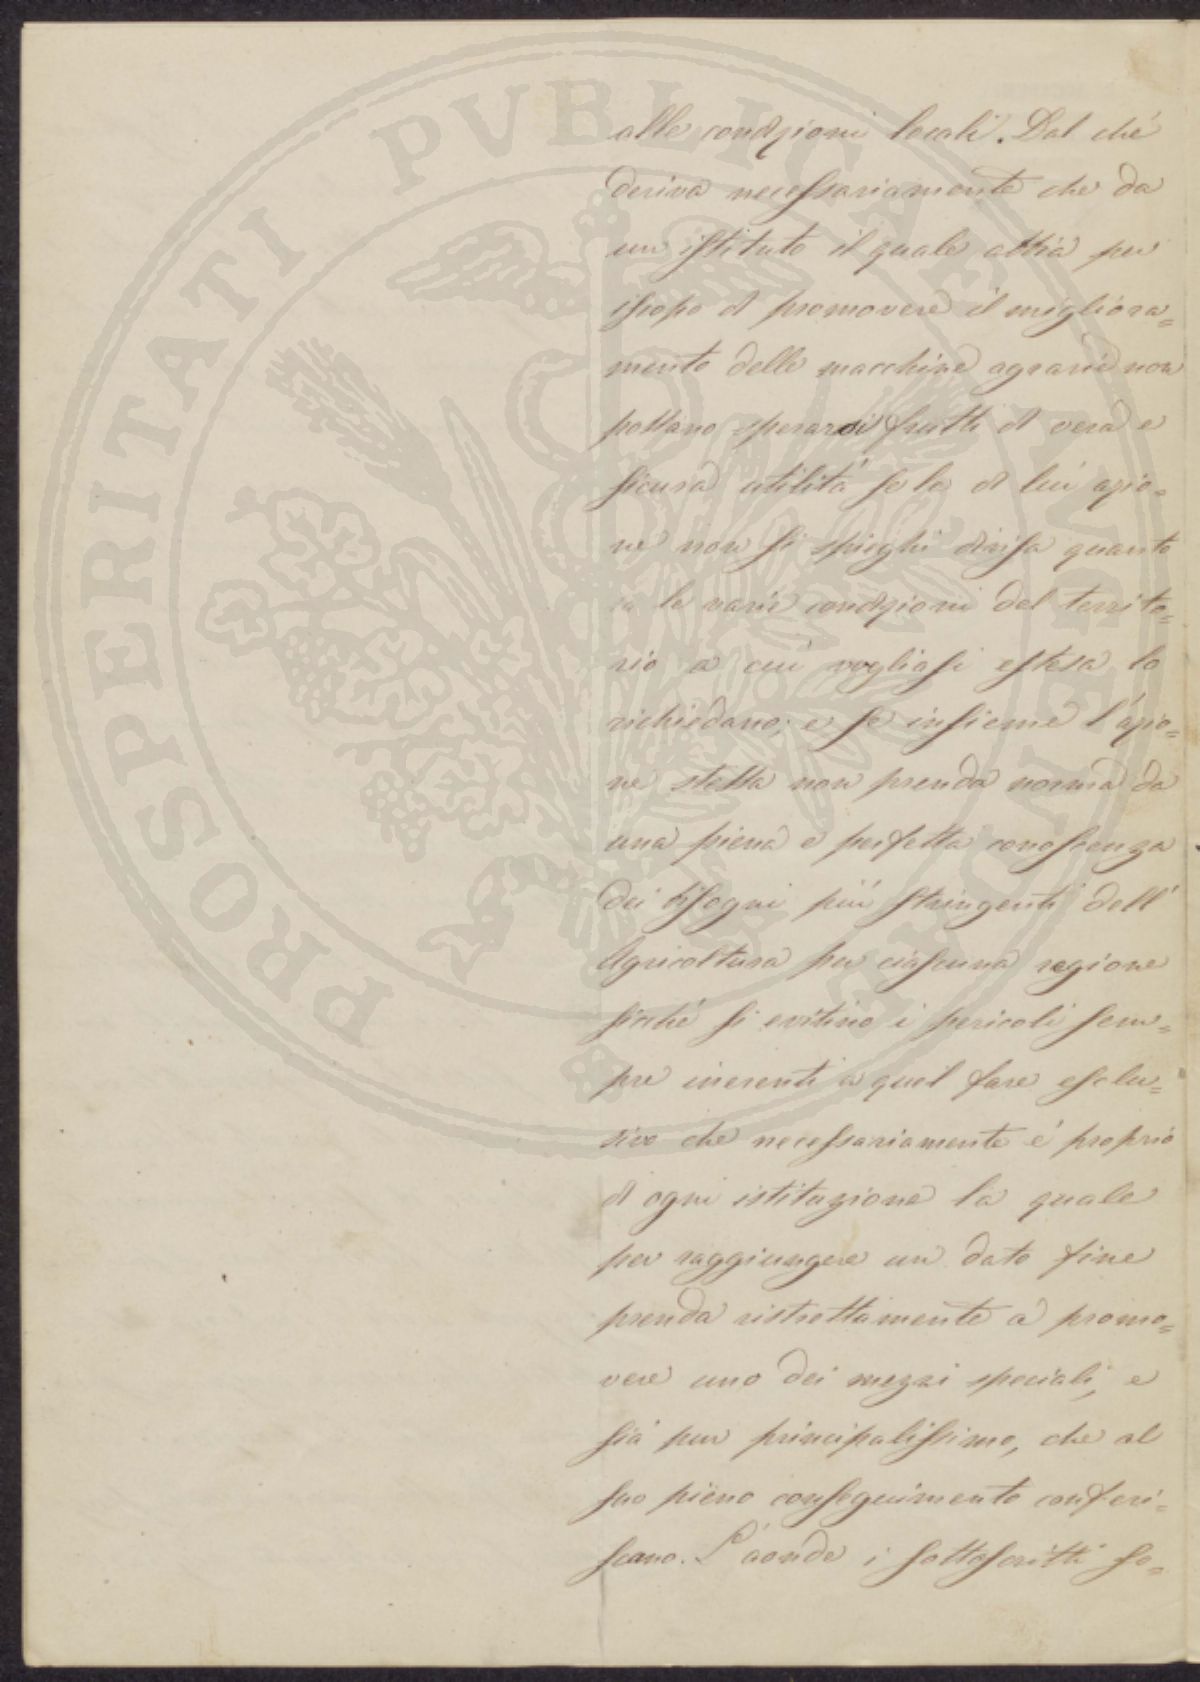 PROSPERITATI PVBLICAE AVGENDAE
alle condizioni locali. Dal che
deriva necessariamente che da
un istituto il quale abbia per
iscopo di promovere il migliora=
mento delle macchine agrarie non
possano sperarsi frutti di vera e
sicura utilità se la di lui azio=
ne non si spieghi divisa quanto
le varie condizioni del territo=
rio a cui vogliasi estesa lo
richiedano; e se insieme l'azio=
ne stessa non prenda norma da
una piena e perfetta conoscenza
dei bisogni più stringenti dell'
Agricoltura per ciascuna regione
sicché si evitino i pericoli sem=
pre inerenti a quel fare esclu=
sivo che necessariamente è proprio
di ogni istituzione la quale
per raggiungere un dato fine
prenda ristrettamente a promo=
vere uno dei mezzi speciali, e
sia pur principalissimo, che al
suo pieno conseguimento conferi=
scano. Laonde i sottoscritti so=